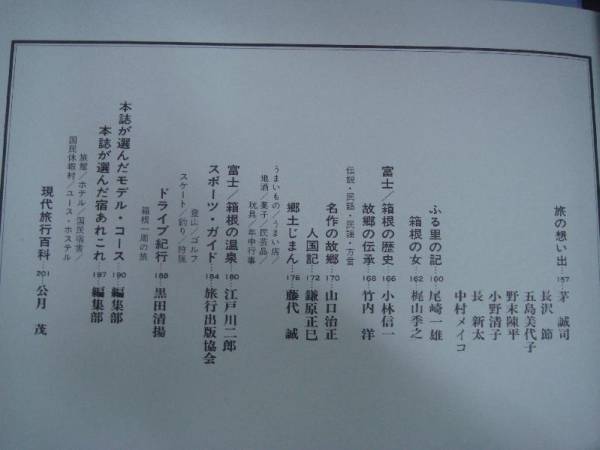 旅の想い出…157 茅 誠司
長沢 節
五島美代子
野末陳平
小野清子
長 新太
中村メイコ
ふる里の記…160 尾崎一雄
箱根の女…162 梶山季之
富士／箱根の歴史…166 小林信一
故郷の伝承…168 竹内 洋
伝説・民話・民謡・方言
名作の故郷…170 山口治正
人国記…172 鎌原正巳
郷土じまん…176 藤代 誠
うまいもの／うまい店／
地酒／菓子／民芸品／
玩具／年中行事
富士／箱根の温泉…180 江戸川二郎
スポーツ・ガイド…184 旅行出版協会
登山／ゴルフ
スケート／釣り／狩猟
ドライブ紀行…188 黒田清揚
箱根一周の旅
本誌が選んだモデル・コース…190 編集部
本誌が選んだ宿あれこれ…197 編集部
旅館／ホテル／国民宿舎／
国民休暇村／ユース・ホステル
現代旅行百科…201 公月 茂